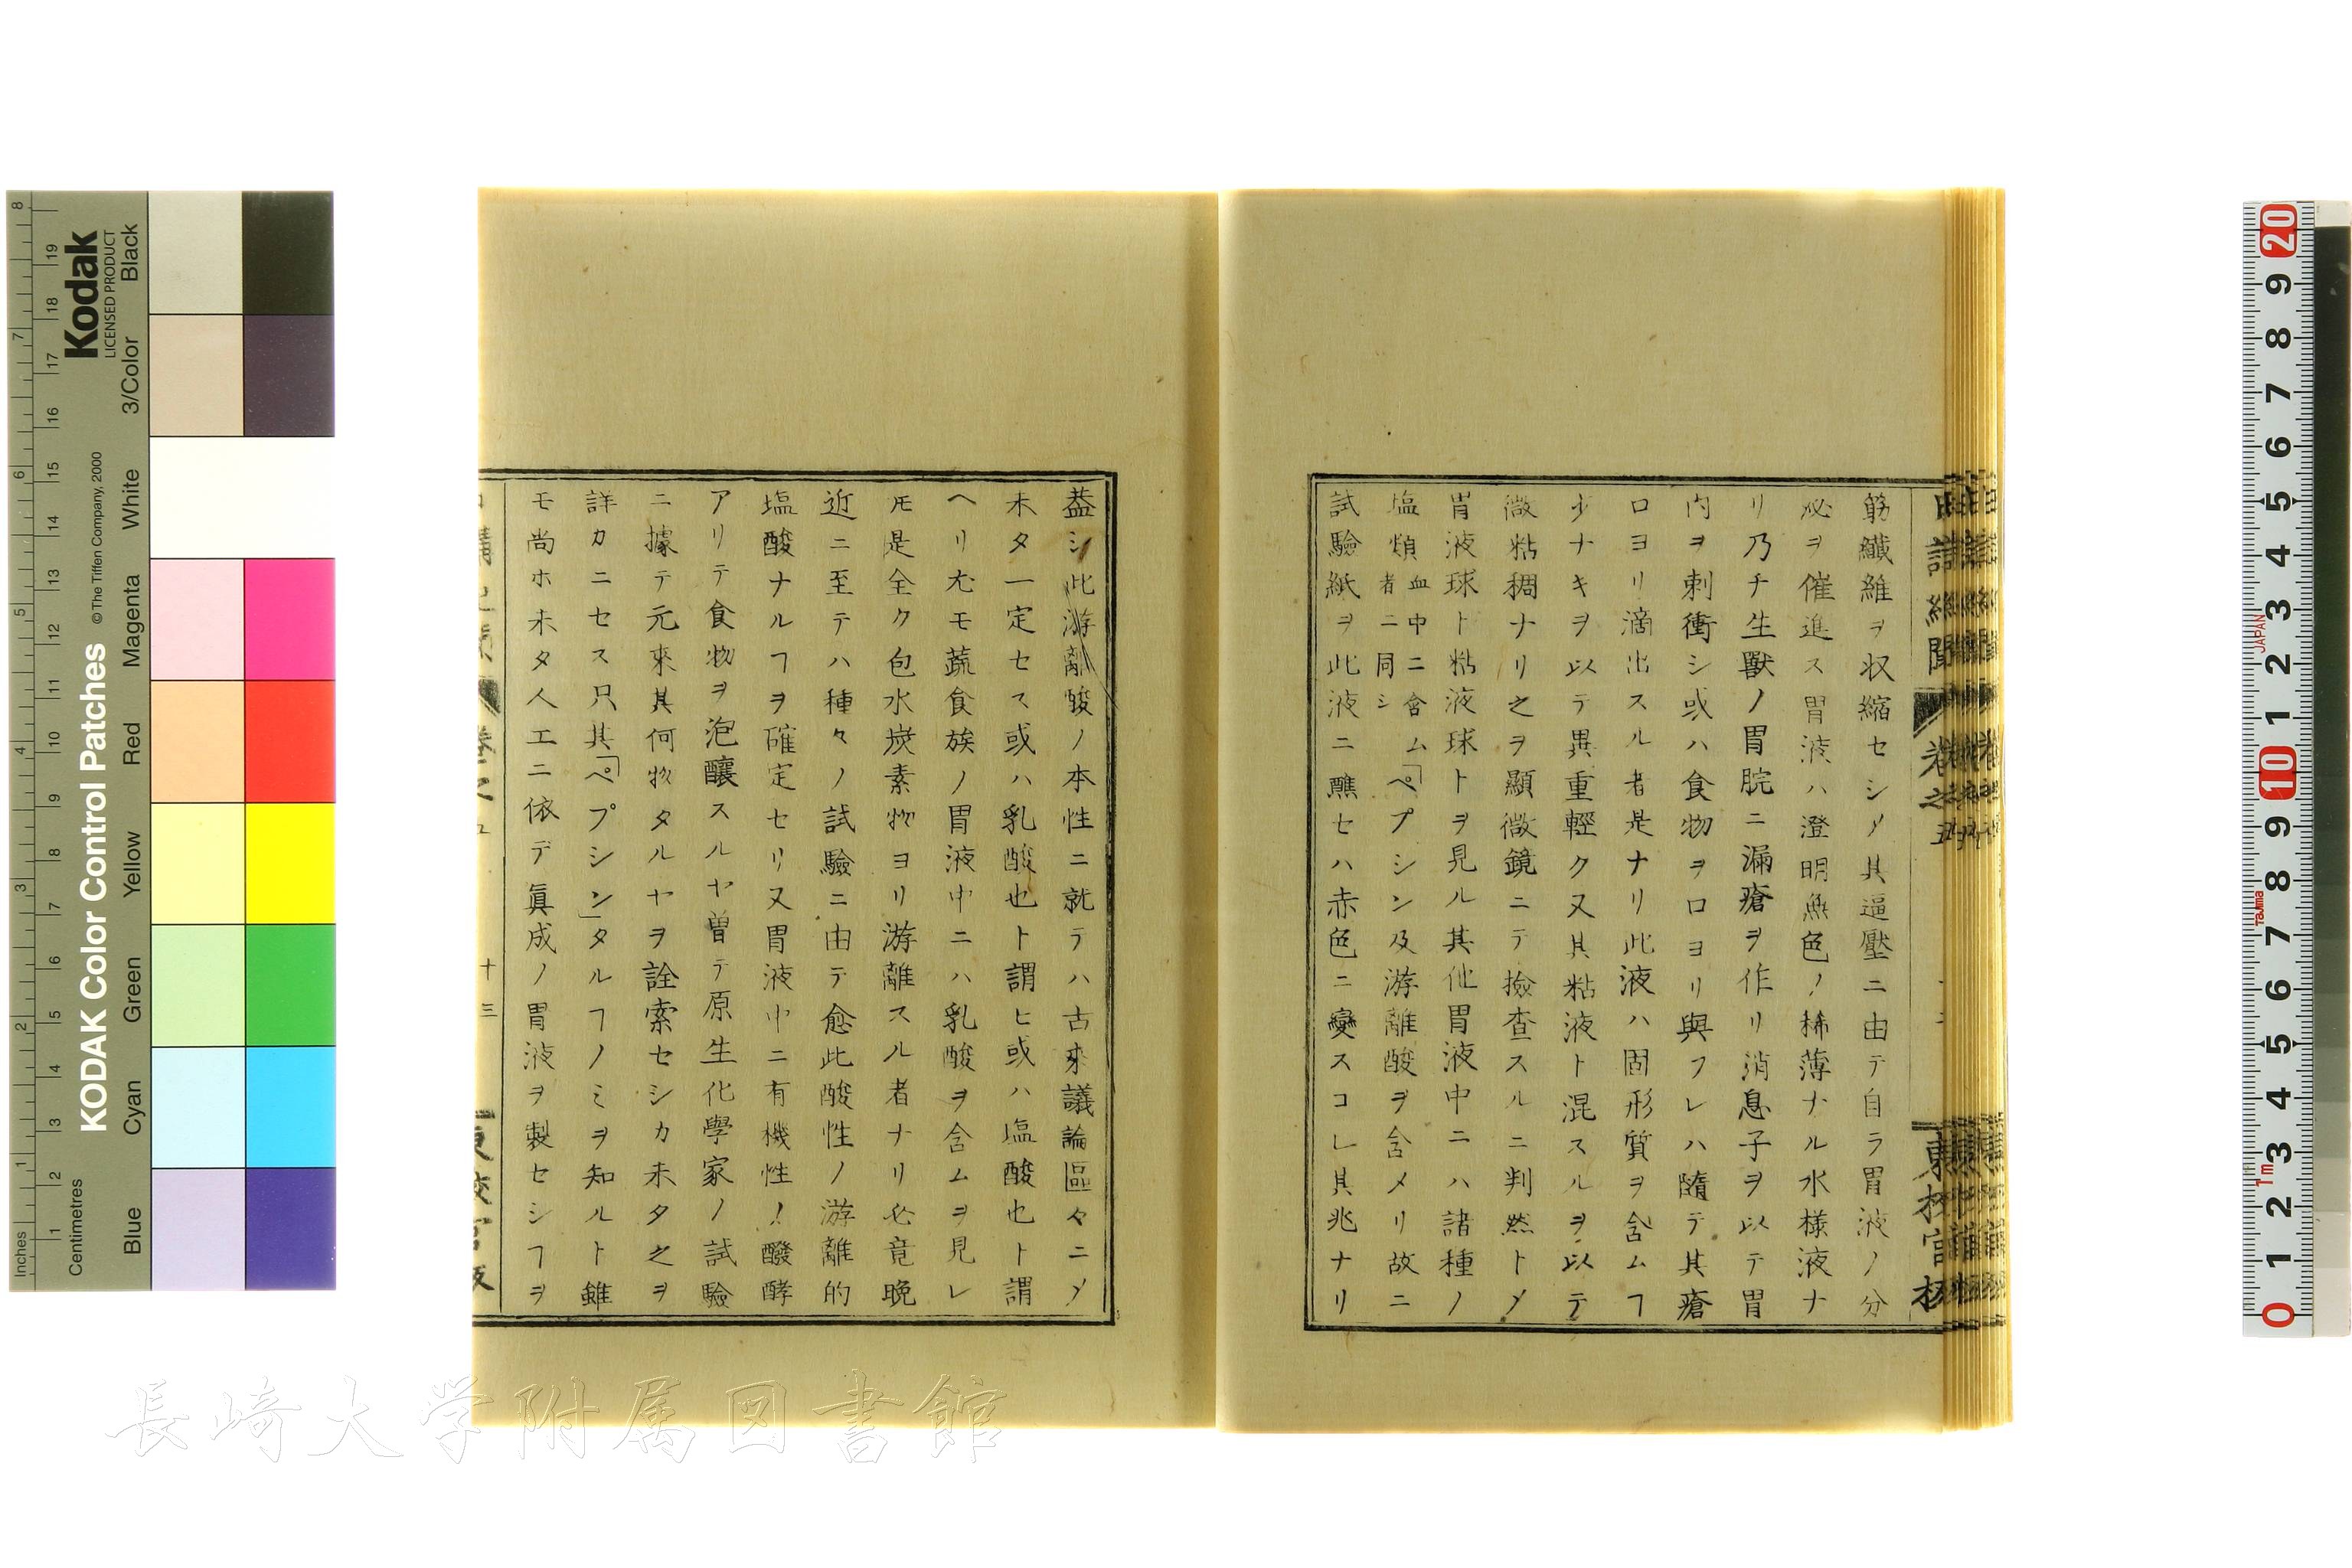 筋纖維ヲ収縮セシメ其逼壓ニ由テ自ラ胃液ノ分
泌ヲ催進ス胃液ハ澄明無色ノ稀薄ナル水様液ナ
リ乃チ生獸ノ胃脘ニ漏瘡ヲ作リ消息子ヲ以テ胃
内ヲ刺衝シ或ハ食物ヲ口ヨリ與フレハ隨テ其瘡
口ヨリ滴出スル者是ナリ此液ハ固形質ヲ含ムヿ
少ナキヲ以テ異重輕ク又其粘液ト混スルヲ以テ
微粘稠ナリ之ヲ顯微鏡ニテ撿査スルニ判然トメ
胃液球ト粘液球トヲ見ル其他胃液中ニハ諸種ノ
塩類血中ニ含ム者ニ同シ「ペプシン及游離酸ヲ含メリ故ニ
試驗紙ヲ此液ニ醮セハ赤色ニ變スコレ其兆ナリ
蓋シ此游離酸ノ本性ニ就テハ古來議論區々ニメ
未タ一定セス或ハ乳酸也ト謂ヒ或ハ塩酸也ト謂
ヘリ尤モ蔬食族ノ胃液中ニハ乳酸ヲ含ムヲ見レ
𪜈是全ク包水炭素物ヨリ游離スル者ナリ必竟晩
近ニ至テハ種々ノ試驗ニ由テ愈此酸性ノ游離的
塩酸ナルヿヲ確定セリ又胃液中ニ有機性ノ醱酵
アリテ食物ヲ泡釀スルヤ曽テ原生化學家ノ試驗
ニ據テ元來其何物タルヤヲ詮索セシカ未タ之ヲ
詳カニセス只其「ペプシン」タルヿノミヲ知ルト雖
モ尚ホ未タ人工ニ依デ眞成ノ胃液ヲ製セシヿヲ
十三
KODAK Color Control Patches
© The Tiffen Company, 2000
Kodak
LICENSED PRODUCT
Inches
Centimetres
Blue Cyan Green Yellow Red Magenta White 3/Color Black
1 2 3 4 5 6 7 8
1 2 3 4 5 6 7 8 9 10 11 12 13 14 15 16 17 18 19
20 9 8 7 6 5 4 3 2 1 10 9 8 7 6 5 4 3 2 1 0
JAPAN
Tajima
1m
長崎大学附属図書館